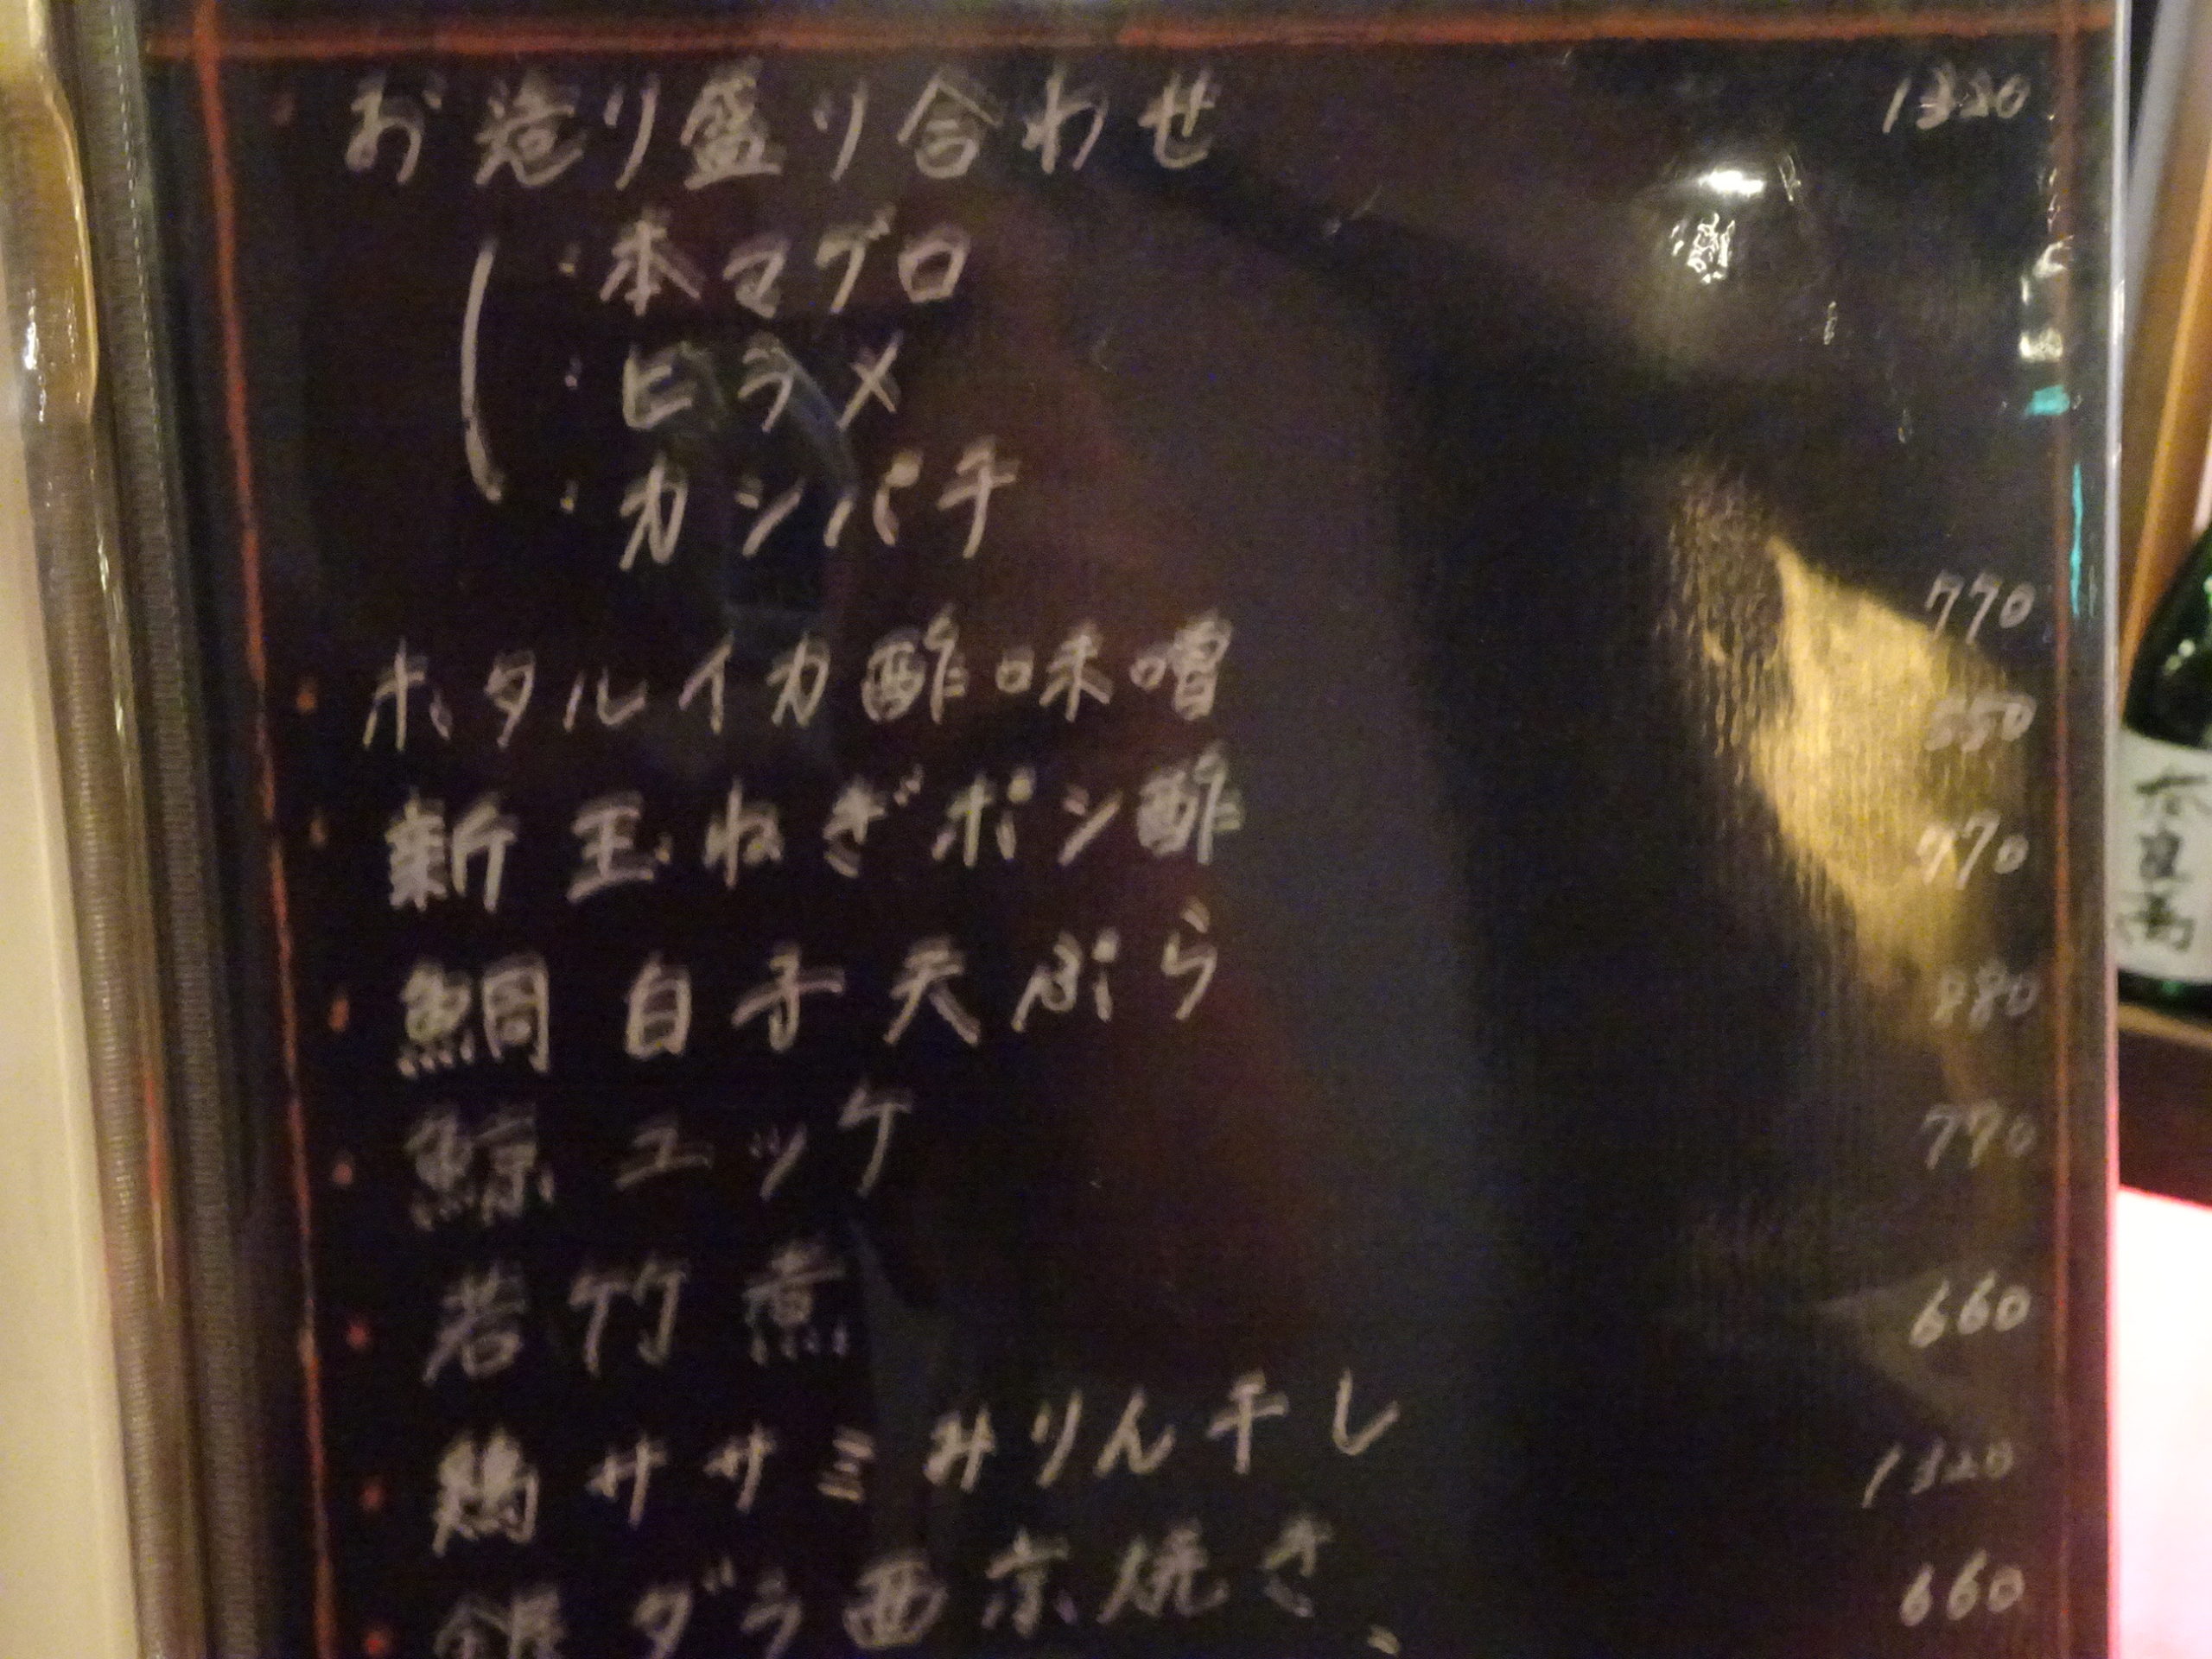 お造り盛り合わせ 1320
・本マグロ
・ヒラメ
・カンパチ
・ホタルイカ酢味噌 770
・新玉ねぎポン酢 550
・鯛白子天ぷら 770
・鯨ユッケ 880
・若竹煮 770
・鶏ササミみりん干し 660
・銀ダラ西京焼き 1320
660